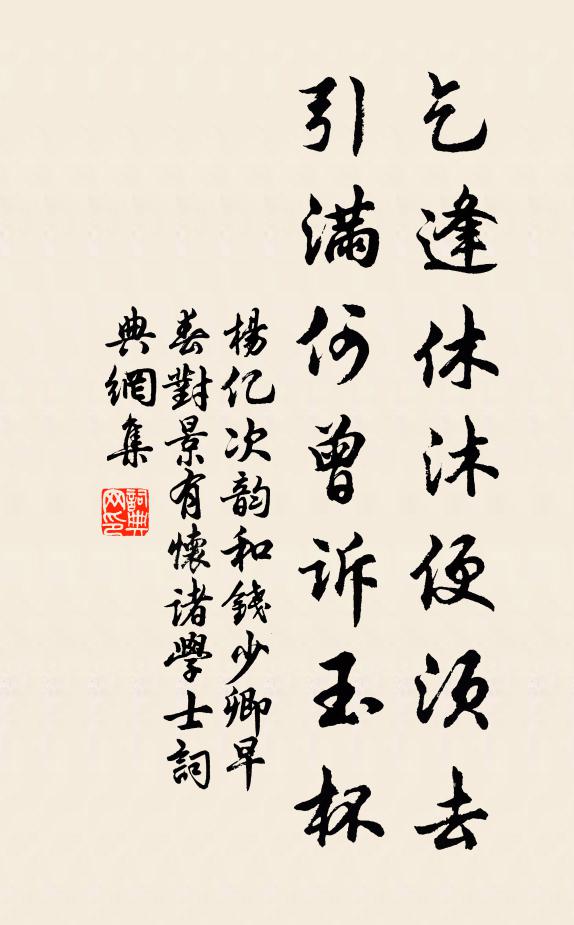 乞逢休沐便須去
引滿何曾訴玉杯
楊億次韵和錢少卿早
春對景有懷諸學士詞
典網集
詞典网印